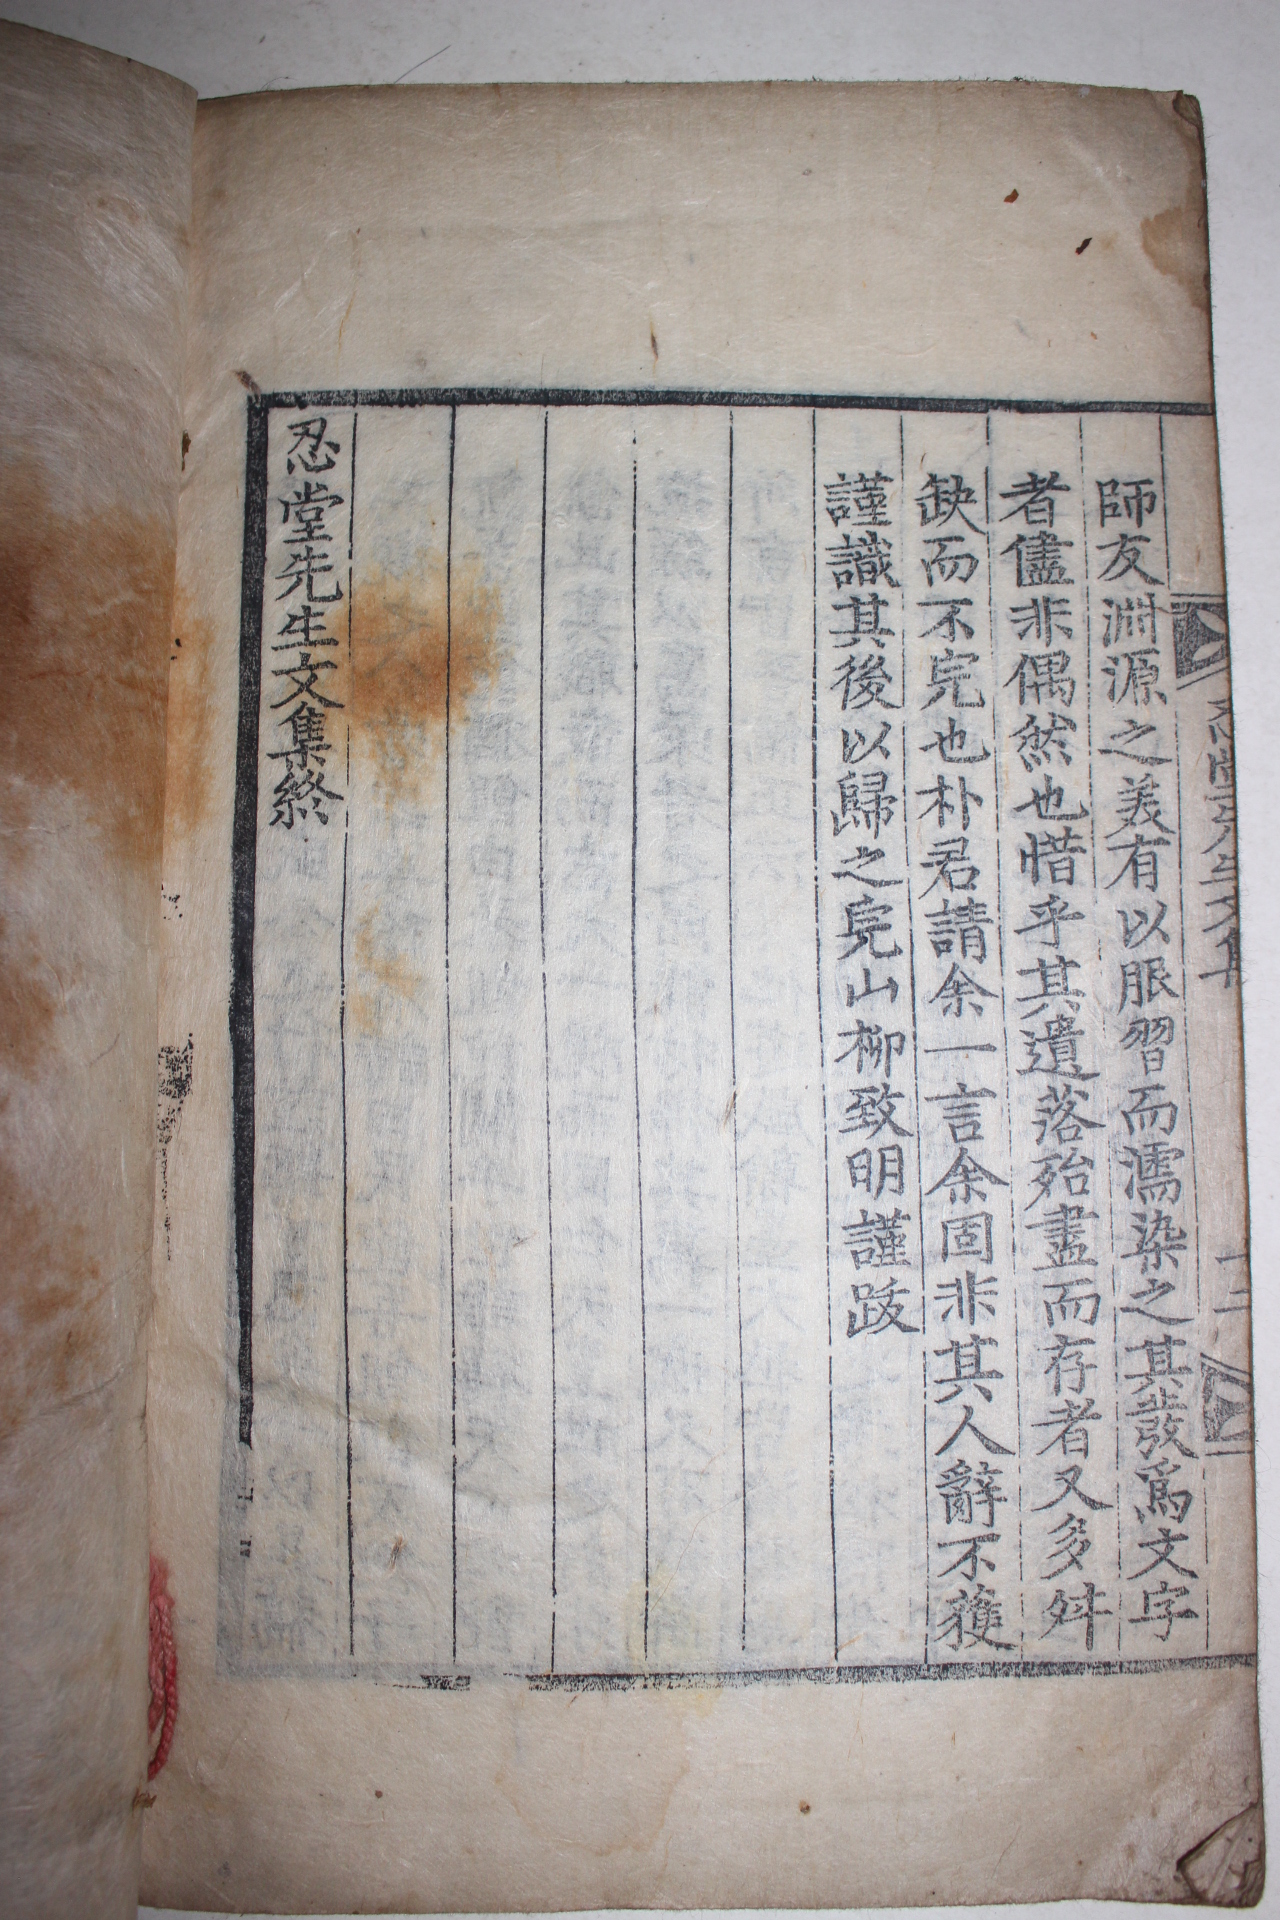 忍堂先生文集
師友淵源之美有以服習而濡染之其發爲文字
者儘非偶然也惜乎其遺落殆盡而存者又多舛
缺而不完也朴君請余一言余固非其人辭不獲
謹識其後以歸之完山柳致明謹跋
忍堂先生文集終